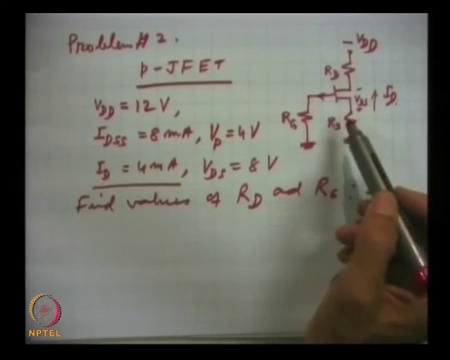 Problem # 2.
p-JFET
VDD = 12V,
IDSS = 8mA, Vp = 4V
ID = 4mA, VDS = 8V
Find values of RD and RS
-VDD
RD
- VDS +
ID
RG
RS
NPTEL